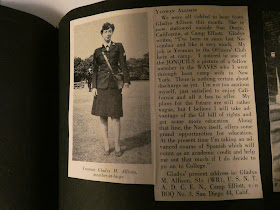 YEOMAN ALLISON
We were all thrilled to hear from
Gladys Allison this month. She is
now stationed outside San Diego,
California, at Camp Elliott. Gladys
wrote, "I've been in since last No-
vember and like it very much. My
job is Yeoman in the Officers' Club
here at camp. I noticed in one of
the JONQUILS a picture of a fellow
member in the WAVES who I went
through boot camp with in New
York. There is nothing certain about
discharge as yet. I'm not too anxious
myself, just satisfied to enjoy Cali-
fornia and all it has to offer. My
plans for the future are still rather
vague, but I believe I will take ad-
vantage of the GI bill of rights and
get some more education. Along
that line, the Navy, itself, offers some
grand opportunities for education. At
the present time I'm taking an ad-
vanced course of Spanish which will
give me an academic credit and help
me out that much if I do decide to
go on to College."
Gladys' present address is: Gladys
M. Allison, S1c (WR), U. S. N. T.
A. D. C. E. N., Camp Elliott, c/o
BOQ No. 3, San Diego 44, Calif.
Yeoman Gladys M. Allison,
member-at-large